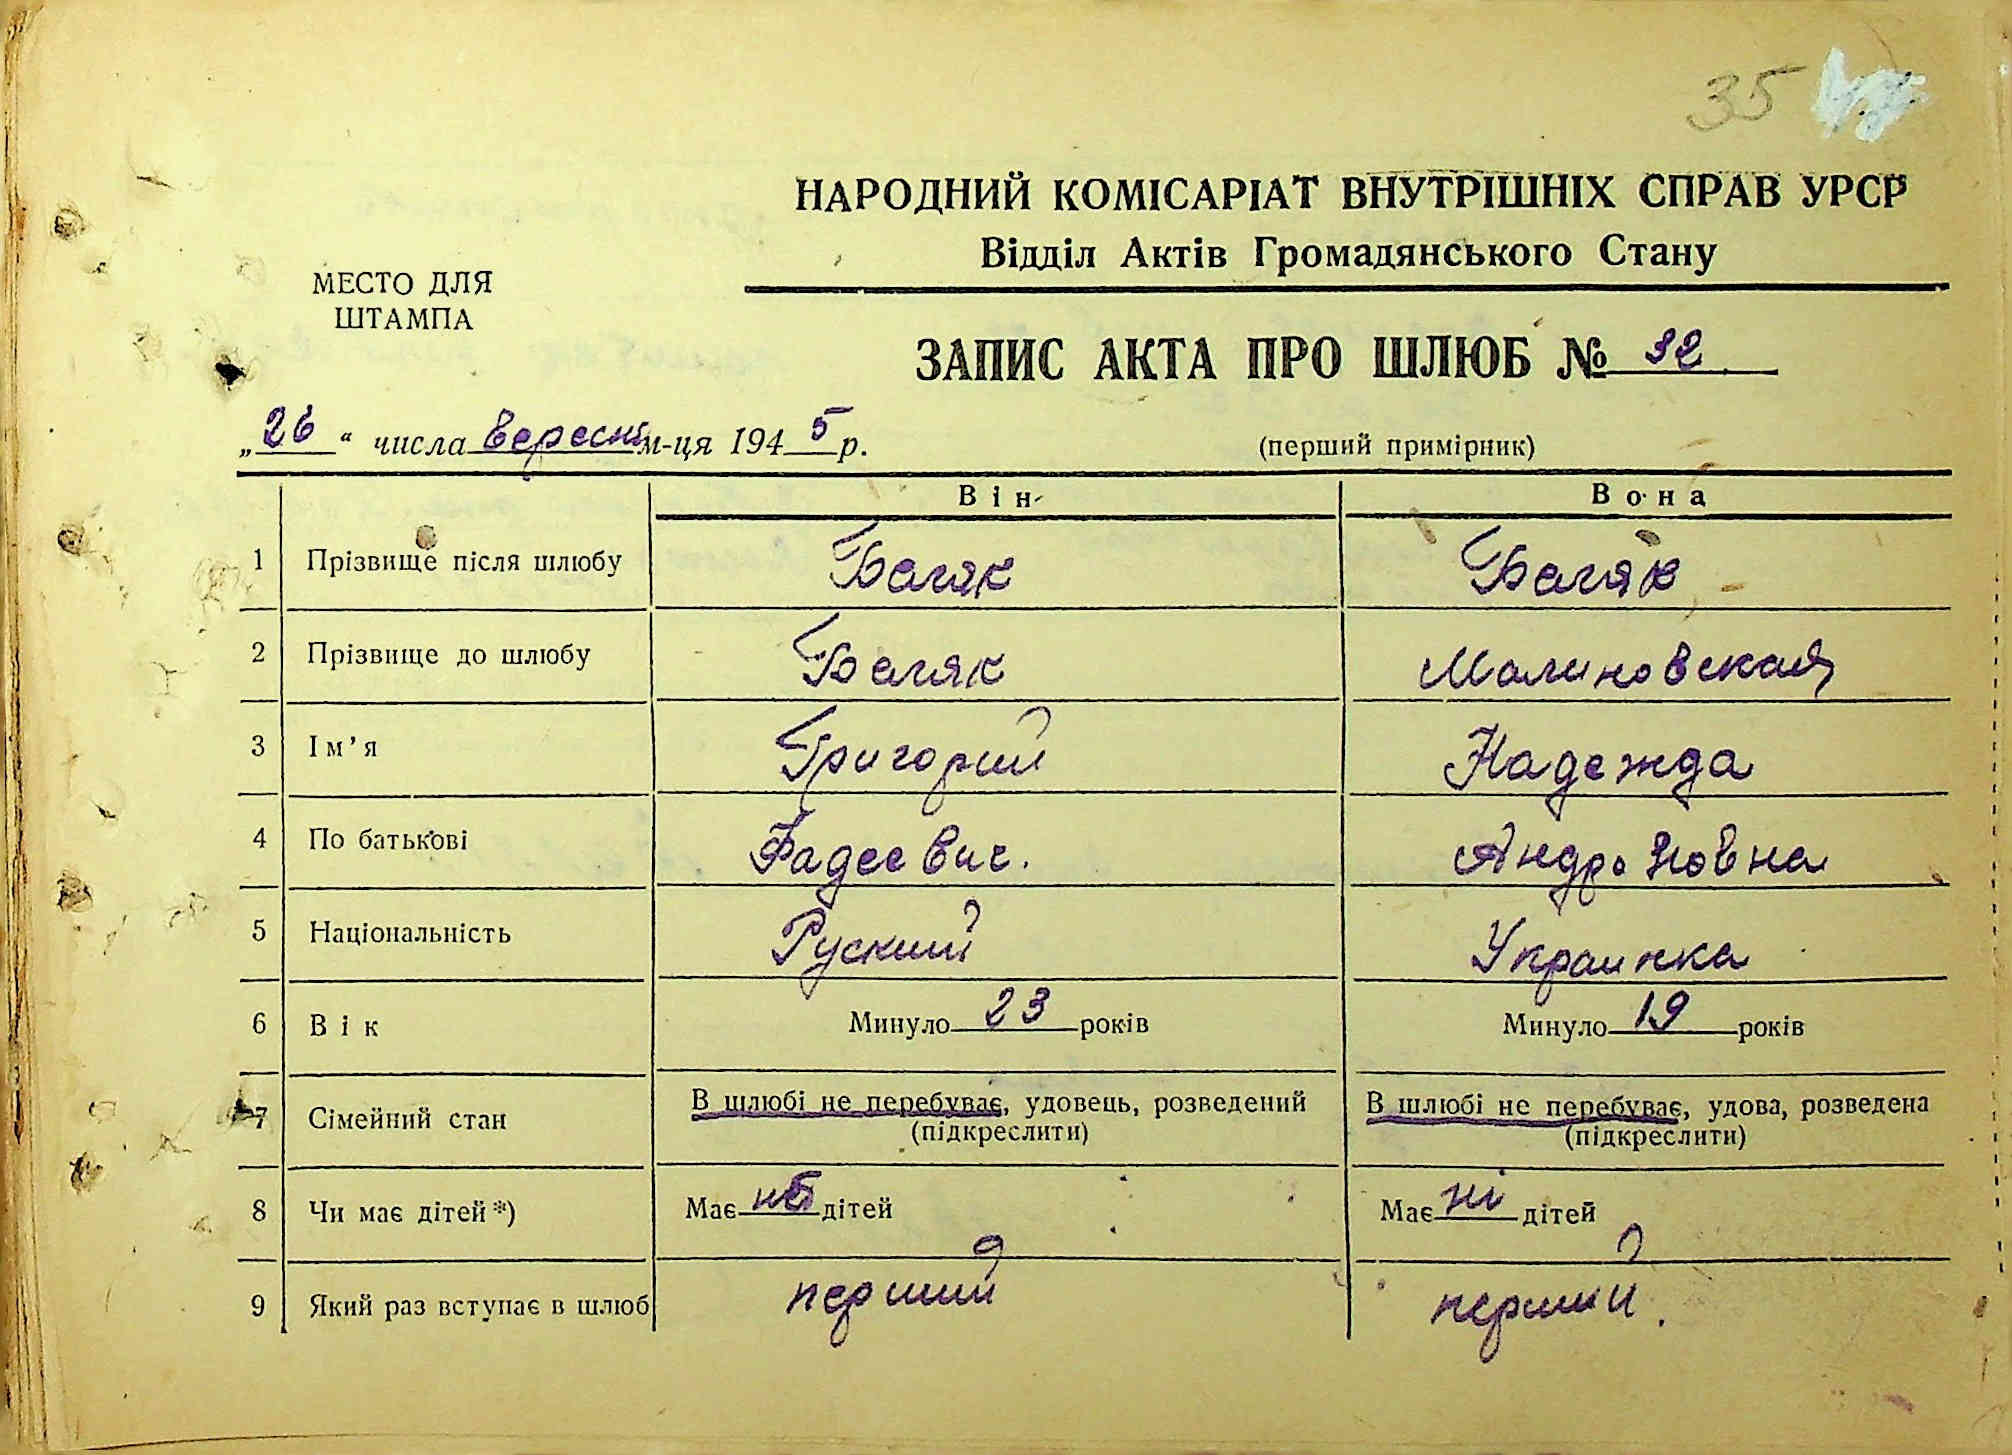 35
НАРОДНИЙ КОМІСАРІАТ ВНУТРІШНІХ СПРАВ УРСР
Відділ Актів Громадянського Стану
МЕСТО ДЛЯ
ШТАМПА
ЗАПИС АКТА ПРО ШЛЮБ № 32
„26“ числа вересня м-ця 1945 р.
(перший примірник)
Він Вона
1 Прізвище після шлюбу Беляк Беляк
2 Прізвище до шлюбу Беляк Малиновская
3 Ім’я Григорий Надежда
4 По батькові Фадеевич. Андроновна
5 Національність Руский Украинка
6 Вік Минуло 23 років Минуло 19 років
7 Сімейний стан В шлюбі не перебуває, удовець, розведений В шлюбі не перебуває, удова, розведена
(підкреслити) (підкреслити)
8 Чи має дітей*) Має дітей Має ні дітей
9 Який раз вступає в шлюб перший перший.